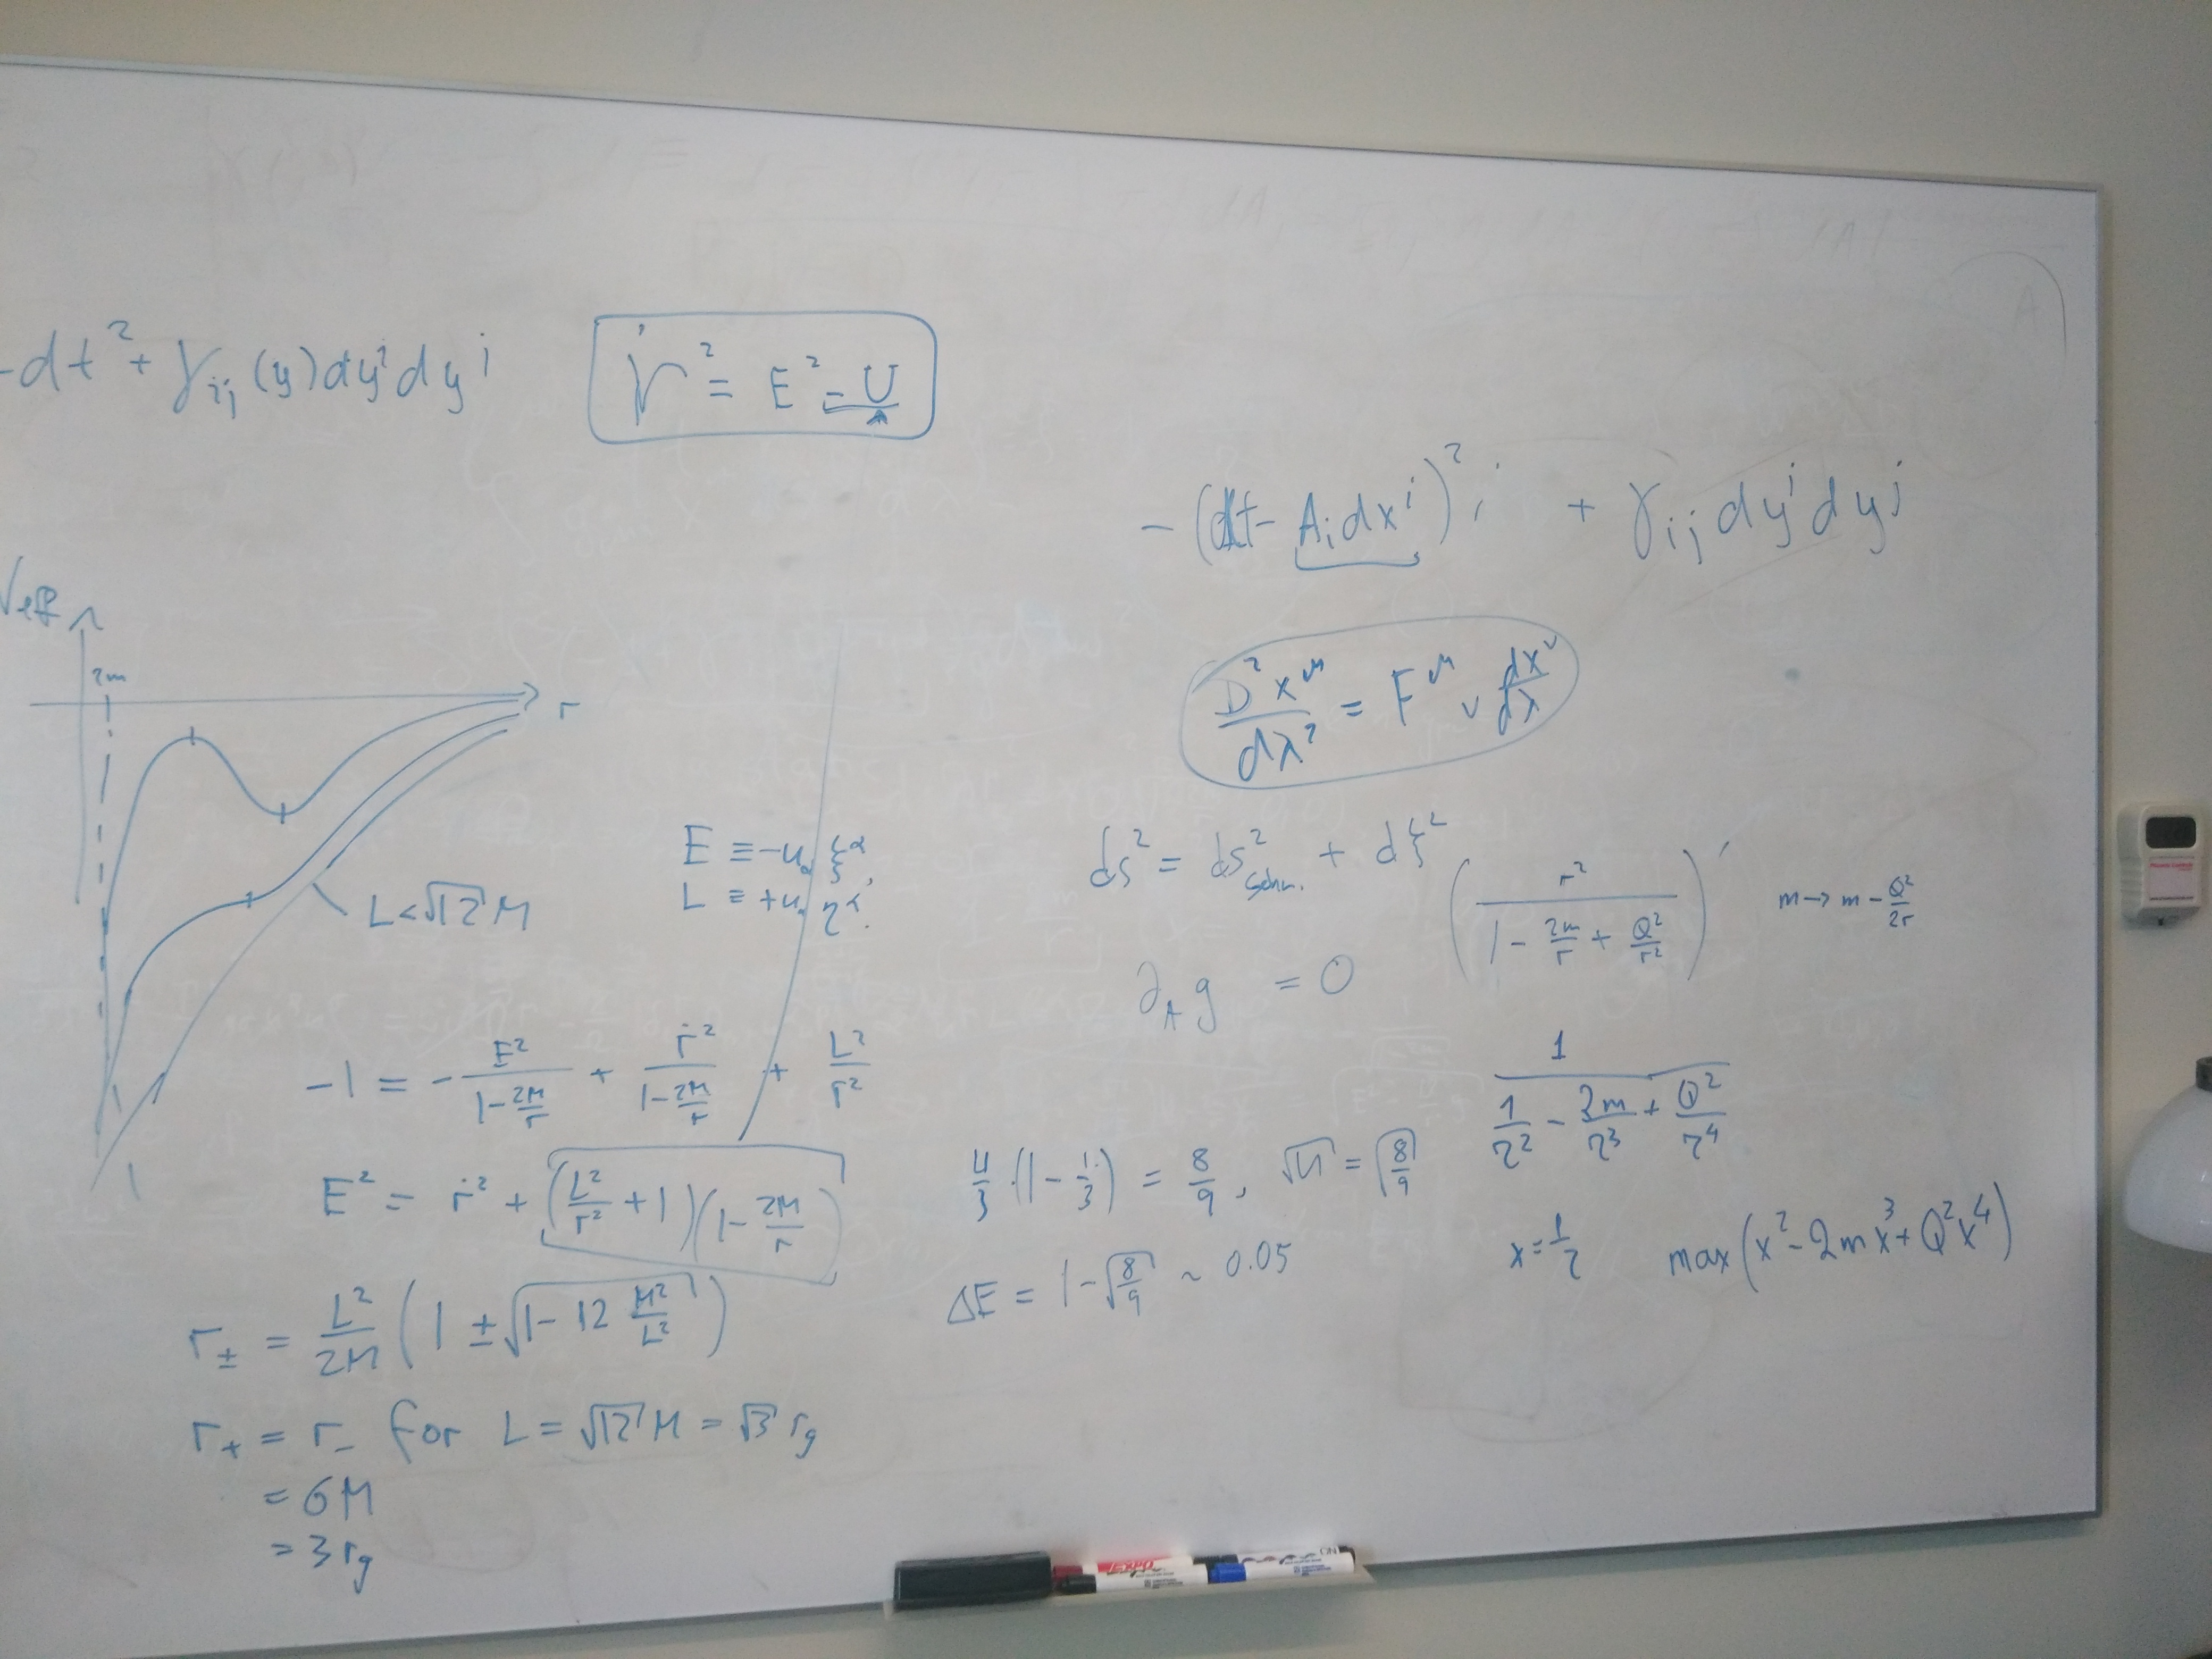 -dt² + γ_ij (y) dy^i dy^j
ṙ² = E² - U
-(dt - A_i dx^i)² + γ_ij dy^i dy^j
V_eff
2m
r
L < √12 M
D²x^μ/dλ² = F^μ_ν dx^ν/dλ
E ≡ -u_α ξ^α,
L ≡ +u_α η^α.
ds² = ds²_Schw. + dξ²
(r² / (1 - 2m/r + Q²/r²))'
m → m - Q²/2r
∂_A g = 0
-1 = - E²/(1 - 2M/r) + ṙ²/(1 - 2M/r) + L²/r²
1 / (1/r² - 2m/r³ + Q²/r⁴)
E² = ṙ² + (L²/r² + 1)(1 - 2M/r)
4/3 · (1 - 1/3) = 8/9, √U = √(8/9)
x = 1/r max(x² - 2mx³ + Q²x⁴)
ΔE = 1 - √(8/9) ~ 0.05
r_± = L²/2M (1 ± √(1 - 12 M²/L²))
r_+ = r_- for L = √12 M = √3 r_g
= 6M
= 3 r_g
EXPO